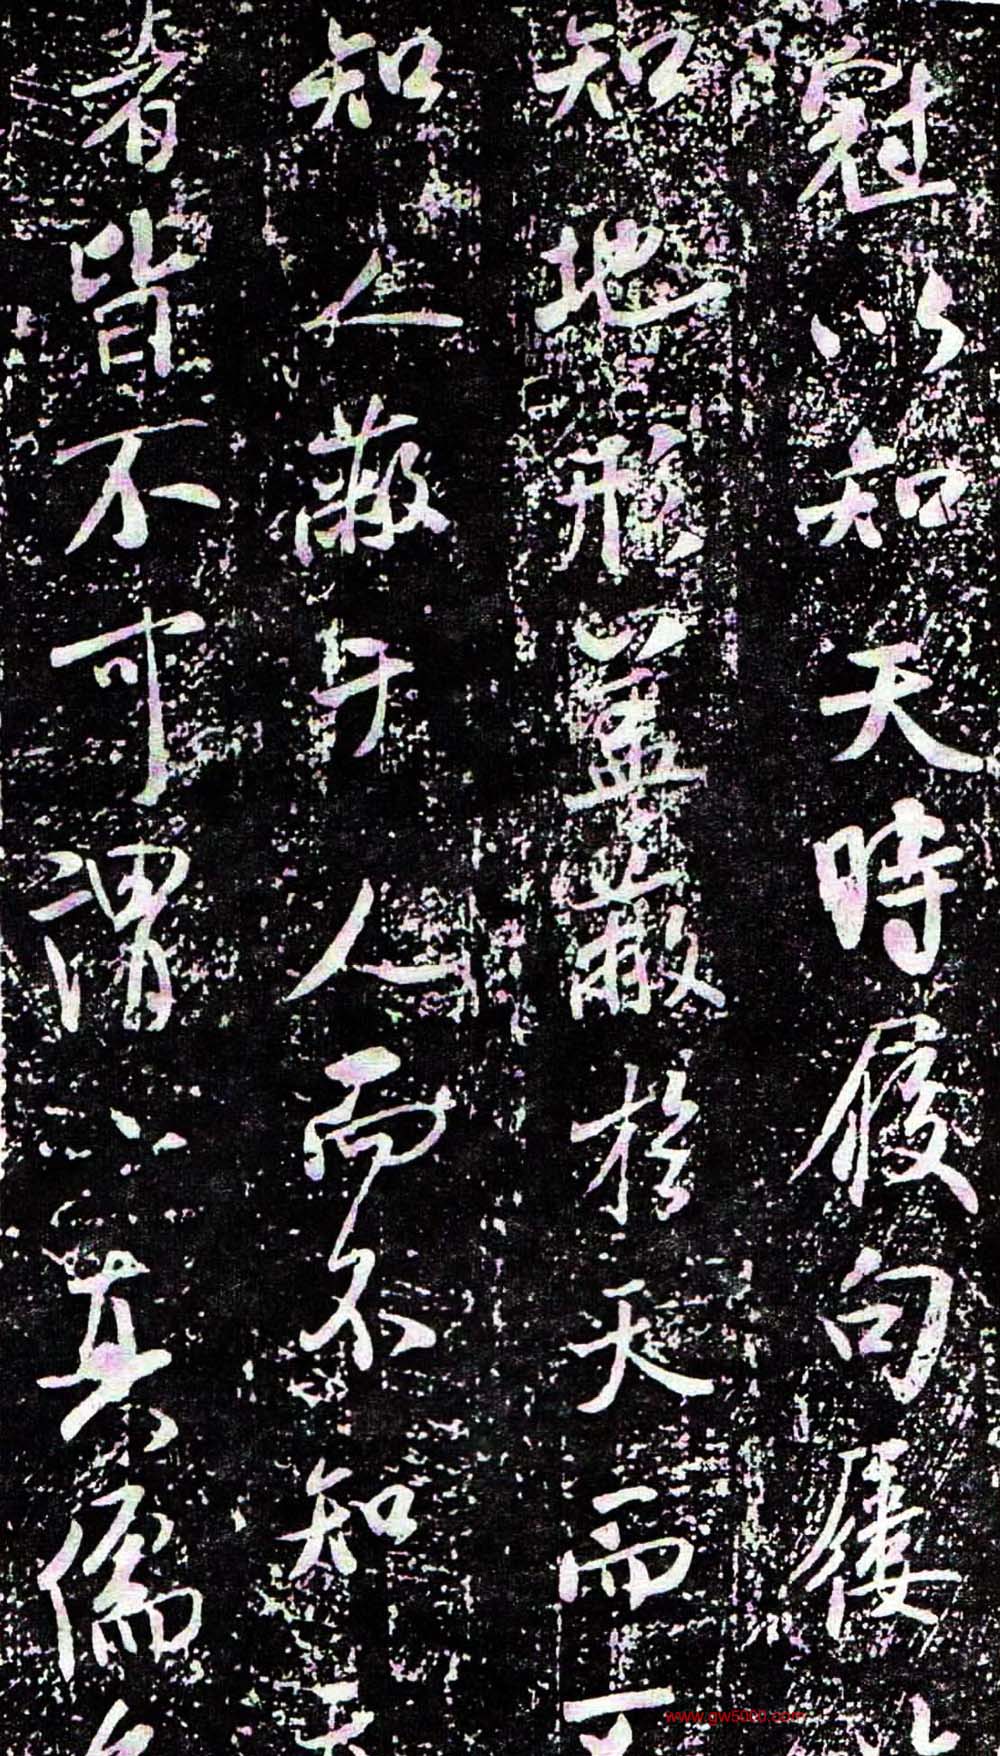 冠以知天時履句屨以
知地形蓋蔽於天而不
知人蔽于人而不知天
者皆不可謂之真儒
www.gw5000.com